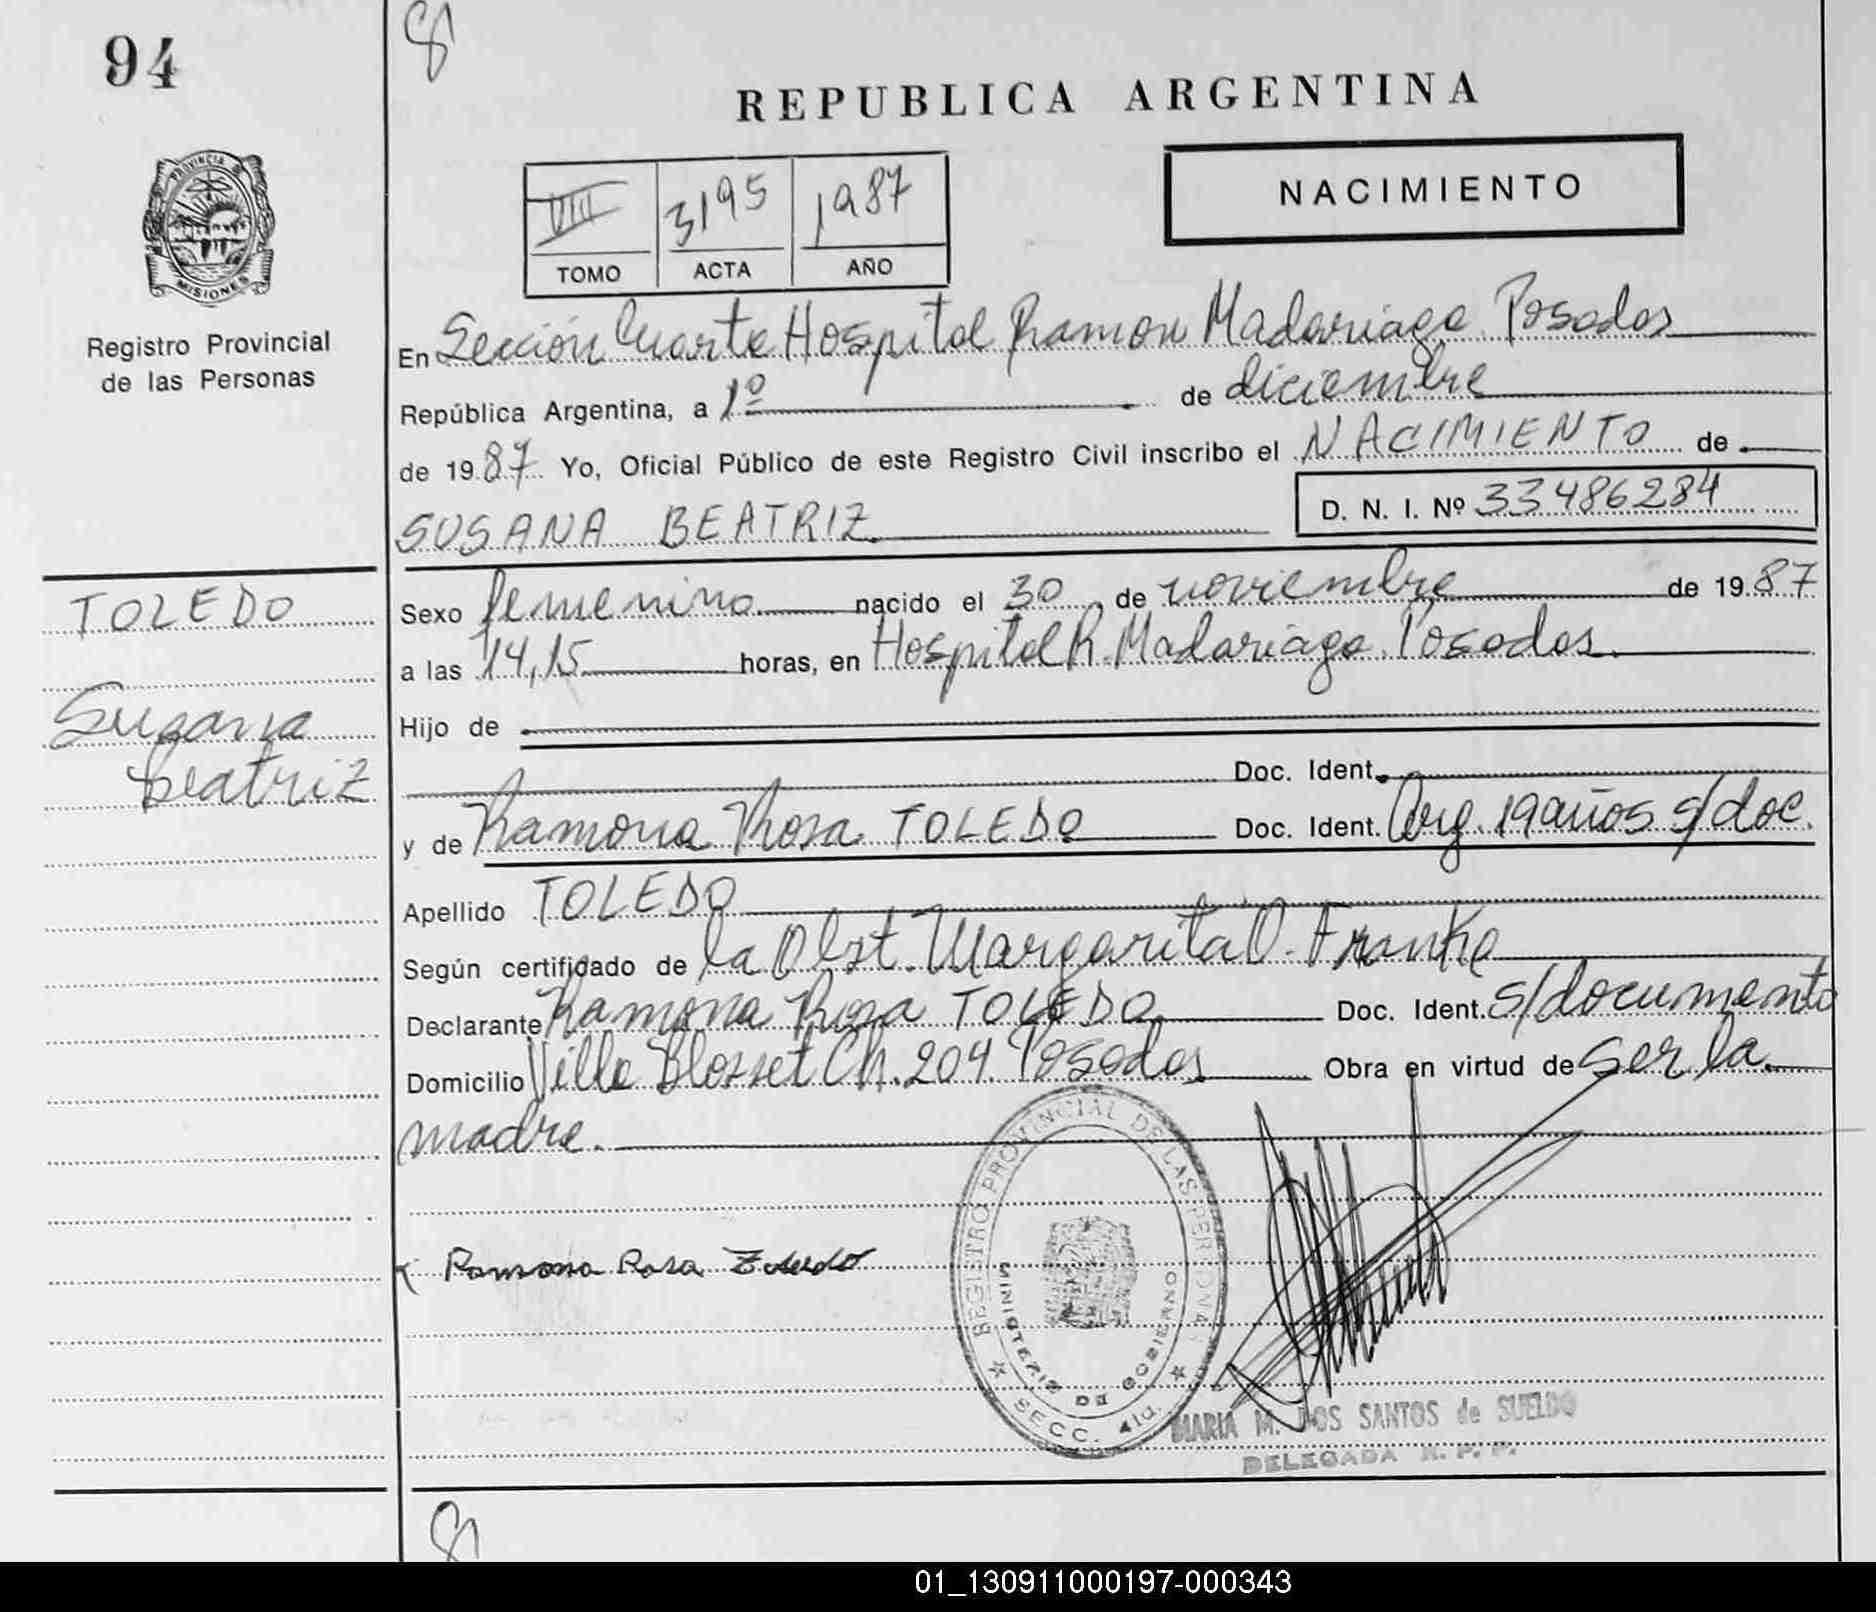 94
8
REPUBLICA ARGENTINA
PROVINCIA
MISIONES
Registro Provincial
de las Personas
VIII 3195 1987
TOMO ACTA AÑO
NACIMIENTO
En Sección Cuarta Hospital Ramon Madariaga Posadas
República Argentina, a 1º de diciembre
de 1987 Yo, Oficial Público de este Registro Civil inscribo el NACIMIENTO de
SUSANA BEATRIZ D. N. I. Nº 33486284
TOLEDO
Susana
Beatriz
Sexo femenino nacido el 30 de noviembre de 1987
a las 14,15 horas, en Hospital R. Madariaga Posadas.
Hijo de
Doc. Ident.
y de Ramona Rosa TOLEDO Doc. Ident. Arg. 19 años s/doc.
Apellido TOLEDO
Según certificado de la Obst. Margarita O. Franke
Declarante Ramona Rosa TOLEDO Doc. Ident. s/documento
Domicilio Villa Blosset Ch. 204 Posadas Obra en virtud de ser la
madre.
Ramona Rosa Toledo
REGISTRO PROVINCIAL DE LAS PERSONAS
MINISTERIO DE GOBIERNO
SECC. 4ta.
MARIA M. DOS SANTOS de SUELDO
DELEGADA R. P. P.
8
01_130911000197-000343